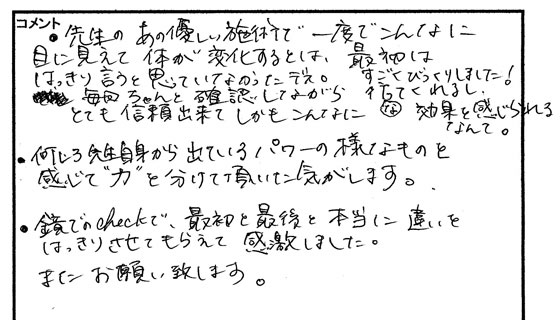 コメント
• 先生のあの優しい施術で一度でこんなに
目に見えて体が変化するとは、最初は
はっきり言うと思っていてなかったデス。すごくびっくりしました!
毎回ちゃんと確認してながら 行てくれるし、
とても信頼出来てしかもこんなに 効果を感じられる
なんて。
• 何じろ先生自身から出ているパワーの様なものを
感じて"力"を分けて頂いた気がします。
• 鏡でのcheckで、最初と最後と本当に違いを
はっきりさせてもらえて感激しました。
またお願い致します。